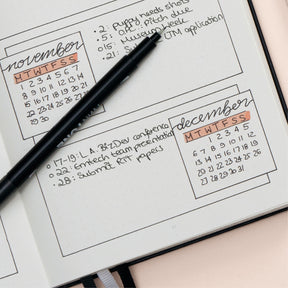 november
M T W T F S S
1 2 3 4 5 6 7
8 9 10 11 12 13 14
15 16 17 18 19 20 21
22 23 24 25 26 27 28
29 30
• 2: puppy needs shots
• 5: pitch due
• 15: Museum Week
• 21: Submit TM application
december
M T W T F S S
1 2 3 4 5
6 7 8 9 10 11 12
13 14 15 16 17 18 19
20 21 22 23 24 25 26
27 28 29 30 31
• 17-19: L.A. BizDev conference
• 22: Emtech team presentation
• 28: Submit RIT papers